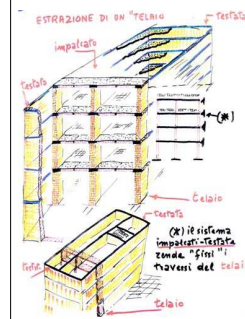 ESTRAZIONE DI UN "TELAIO
testata
impalcato
testata
(*)
telaio
testata
(*) il sistema
impalcati-testate
rende "fissi" i
traversi del telai
telaio